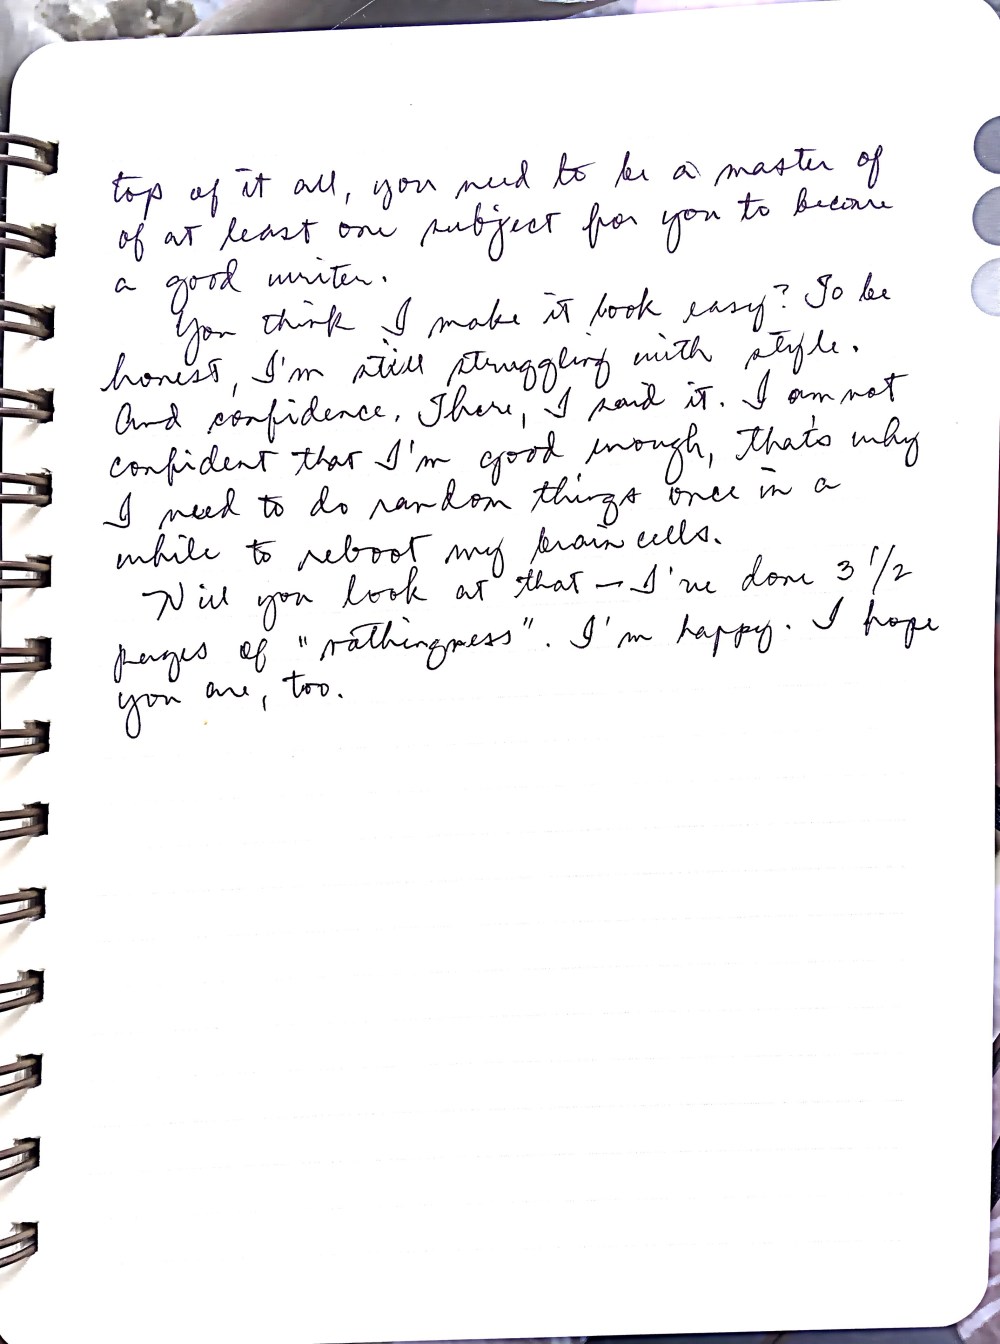 top of it all, you need to be a master of
of at least one subject for you to become
a good writer.
You think I make it look easy? To be
honest, I'm still struggling with style.
And confidence. There, I said it. I am not
confident that I'm good enough, that's why
I need to do random things once in a
while to reboot my brain cells.
Will you look at that — I've done 3 1/2
pages of "nothingness". I'm happy. I hope
you are, too.